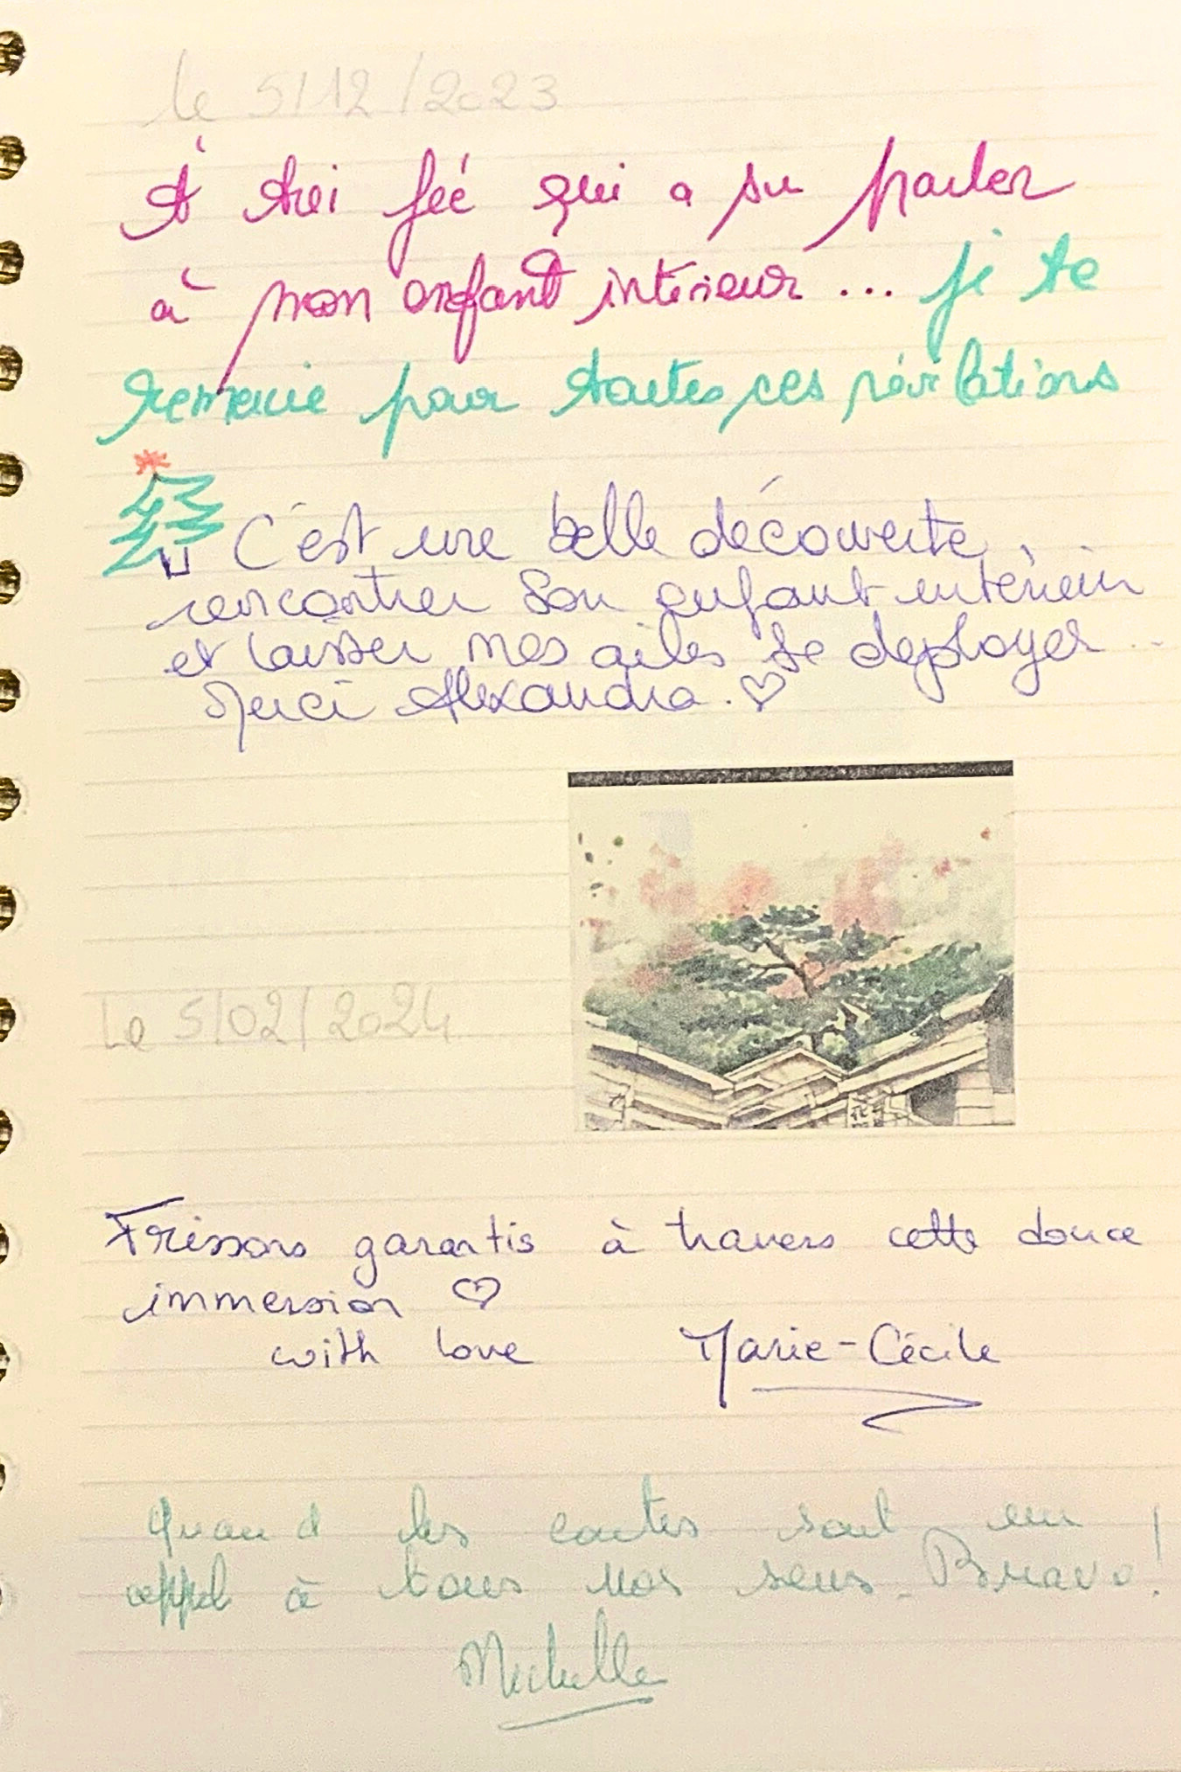 le 5/12/2023
À toi fée qui a su parler
à mon enfant intérieur... je te
remercie pour toutes ces révélations
C'est une belle découverte,
rencontrer son enfant intérieur
et laisser mes ailes se deployer...
Merci Alexandra. ♡
Le 5/02/2024
Frissons garantis à travers cette douce
immersion ♡
with love Marie-Cécile
Quand les contes sont un
appel à tous nos sens. Bravo!
Michelle